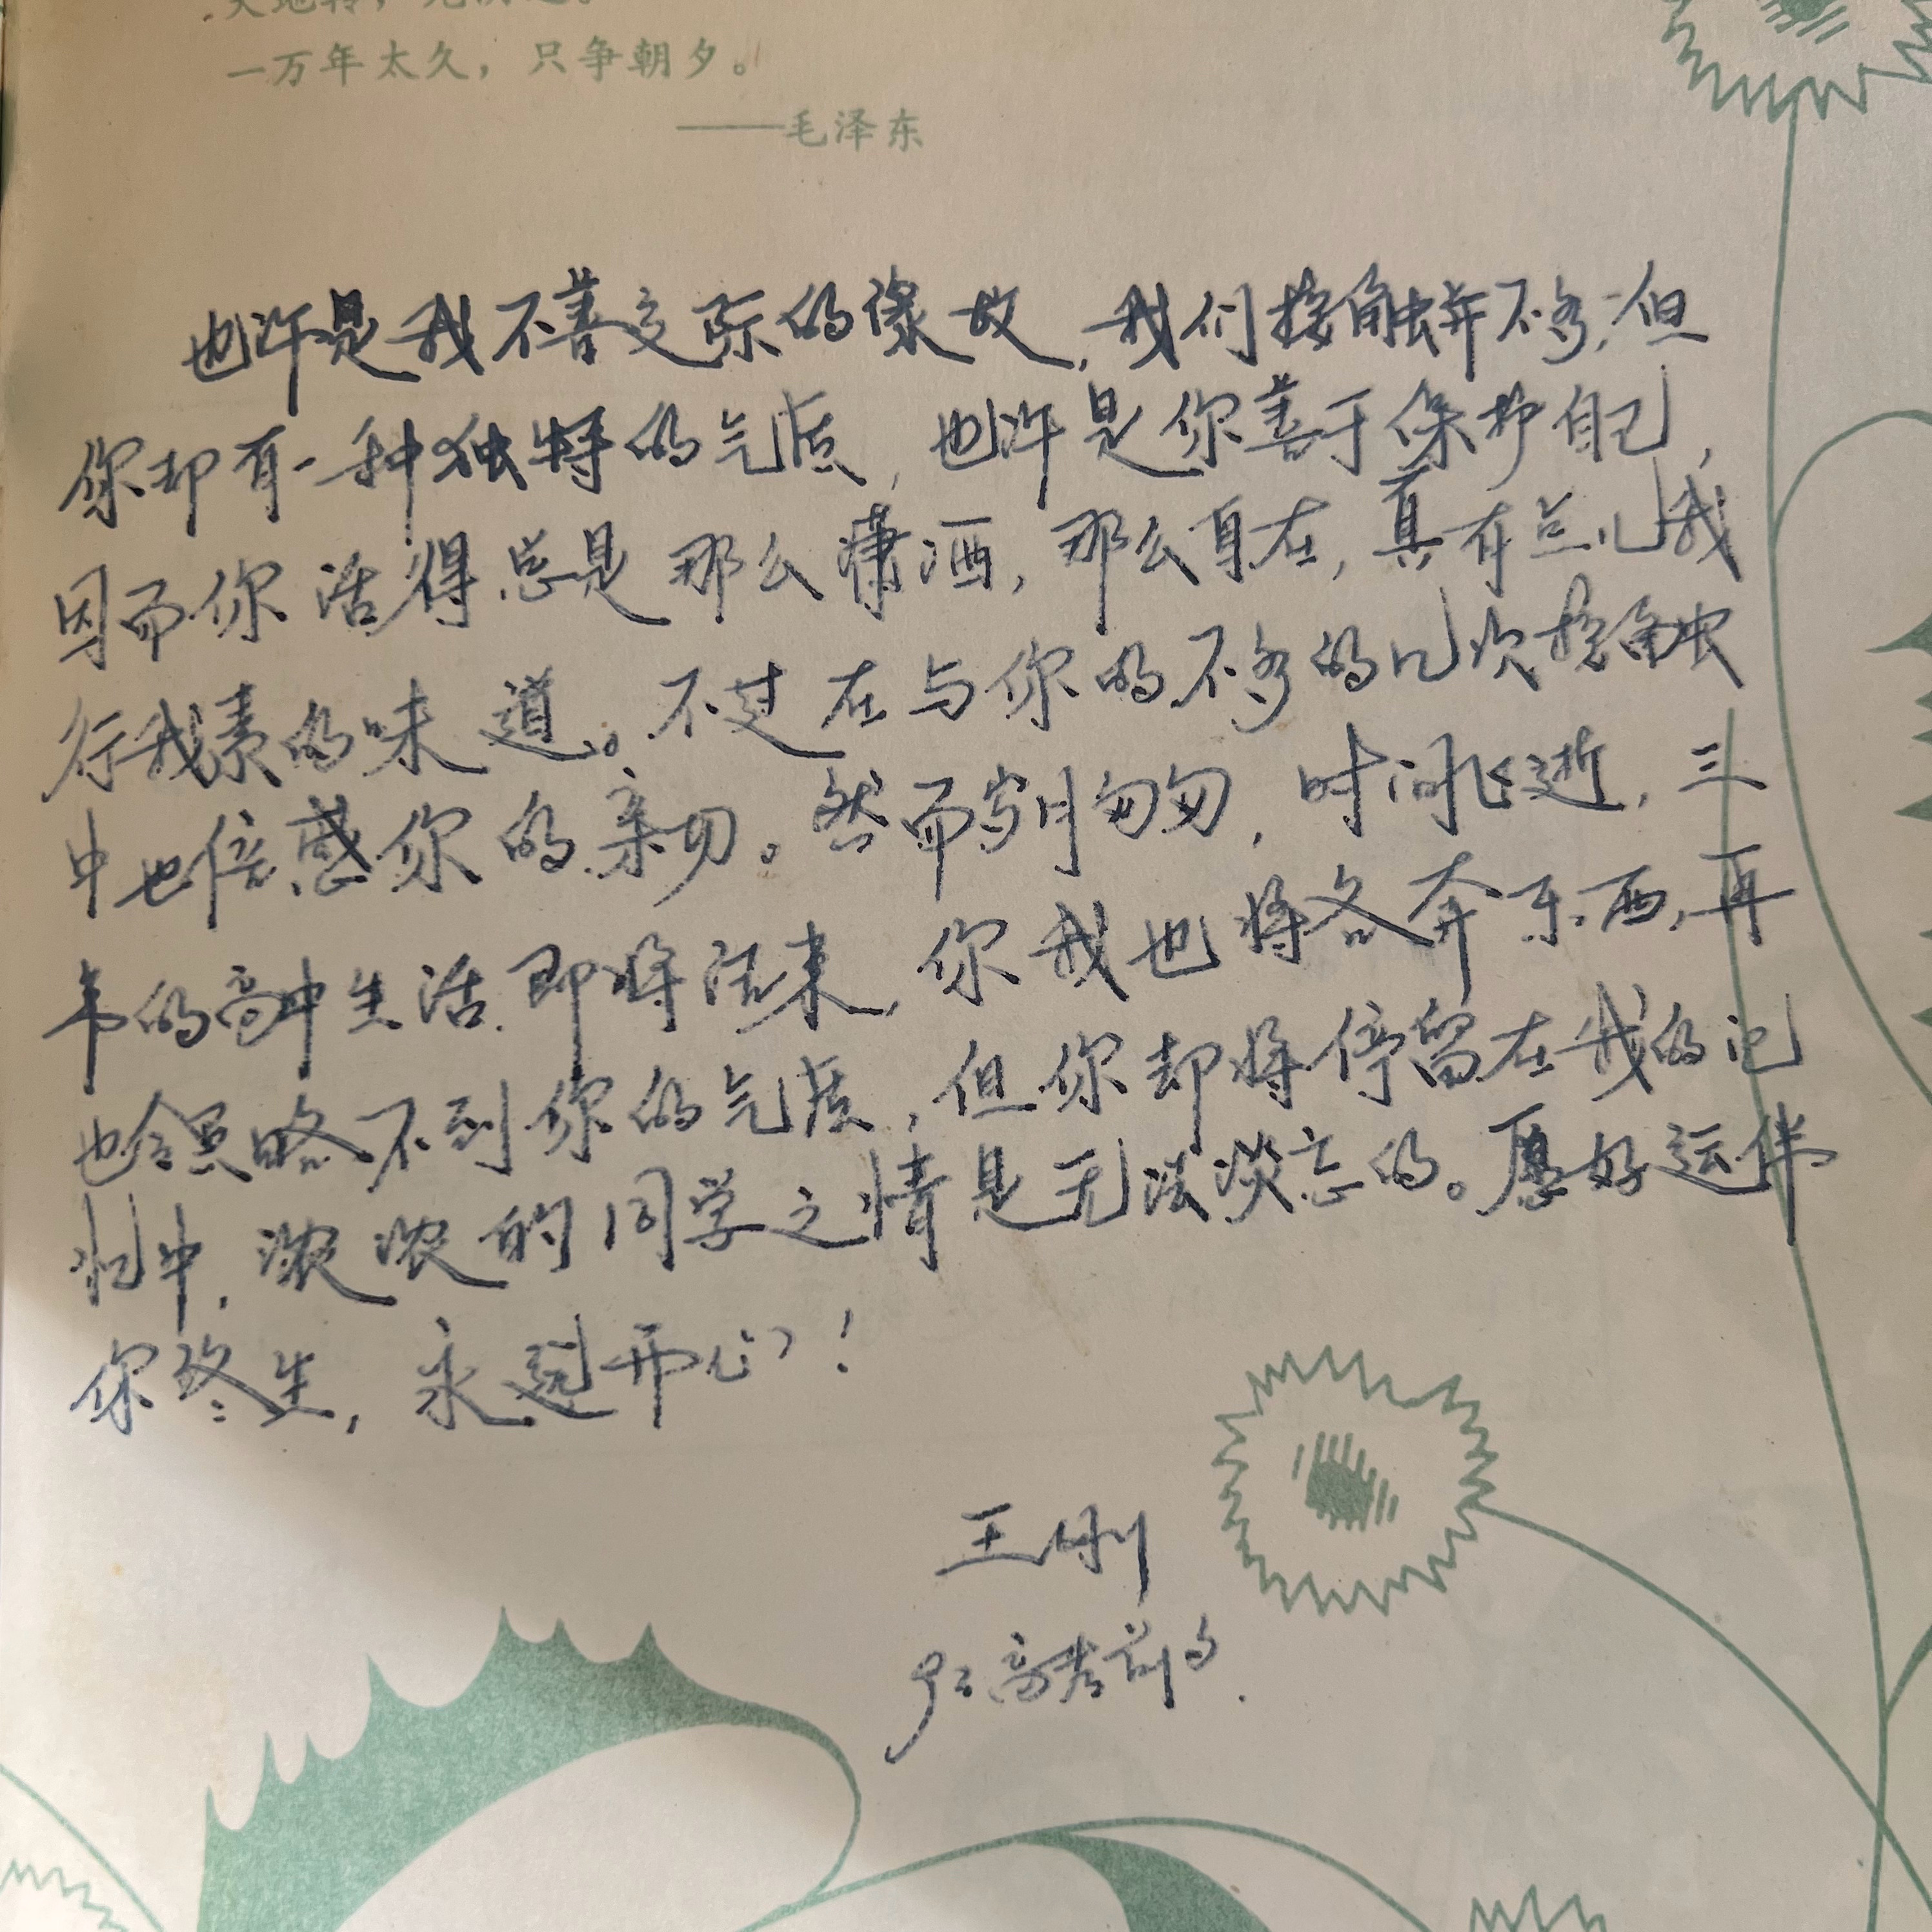 天地转，光阴迫。
一万年太久，只争朝夕。
——毛泽东
也许是我不善交际的缘故，我们接触并不多，但
你却有一种独特的气质，也许是你善于保护自己，
因而你活得总是那么潇洒，那么自在，真有点儿我
行我素的味道。不过在与你的不多的几次接触
中也倍感你的亲切。然而岁月匆匆，时间飞逝，三
年的高中生活即将结束，你我也将各奔东西，再
也领略不到你的气质，但你却将停留在我的记
忆中，浓浓的同学之情是无法淡忘的。愿好运伴
你终生，永远开心！
王刚
93高考前夕.